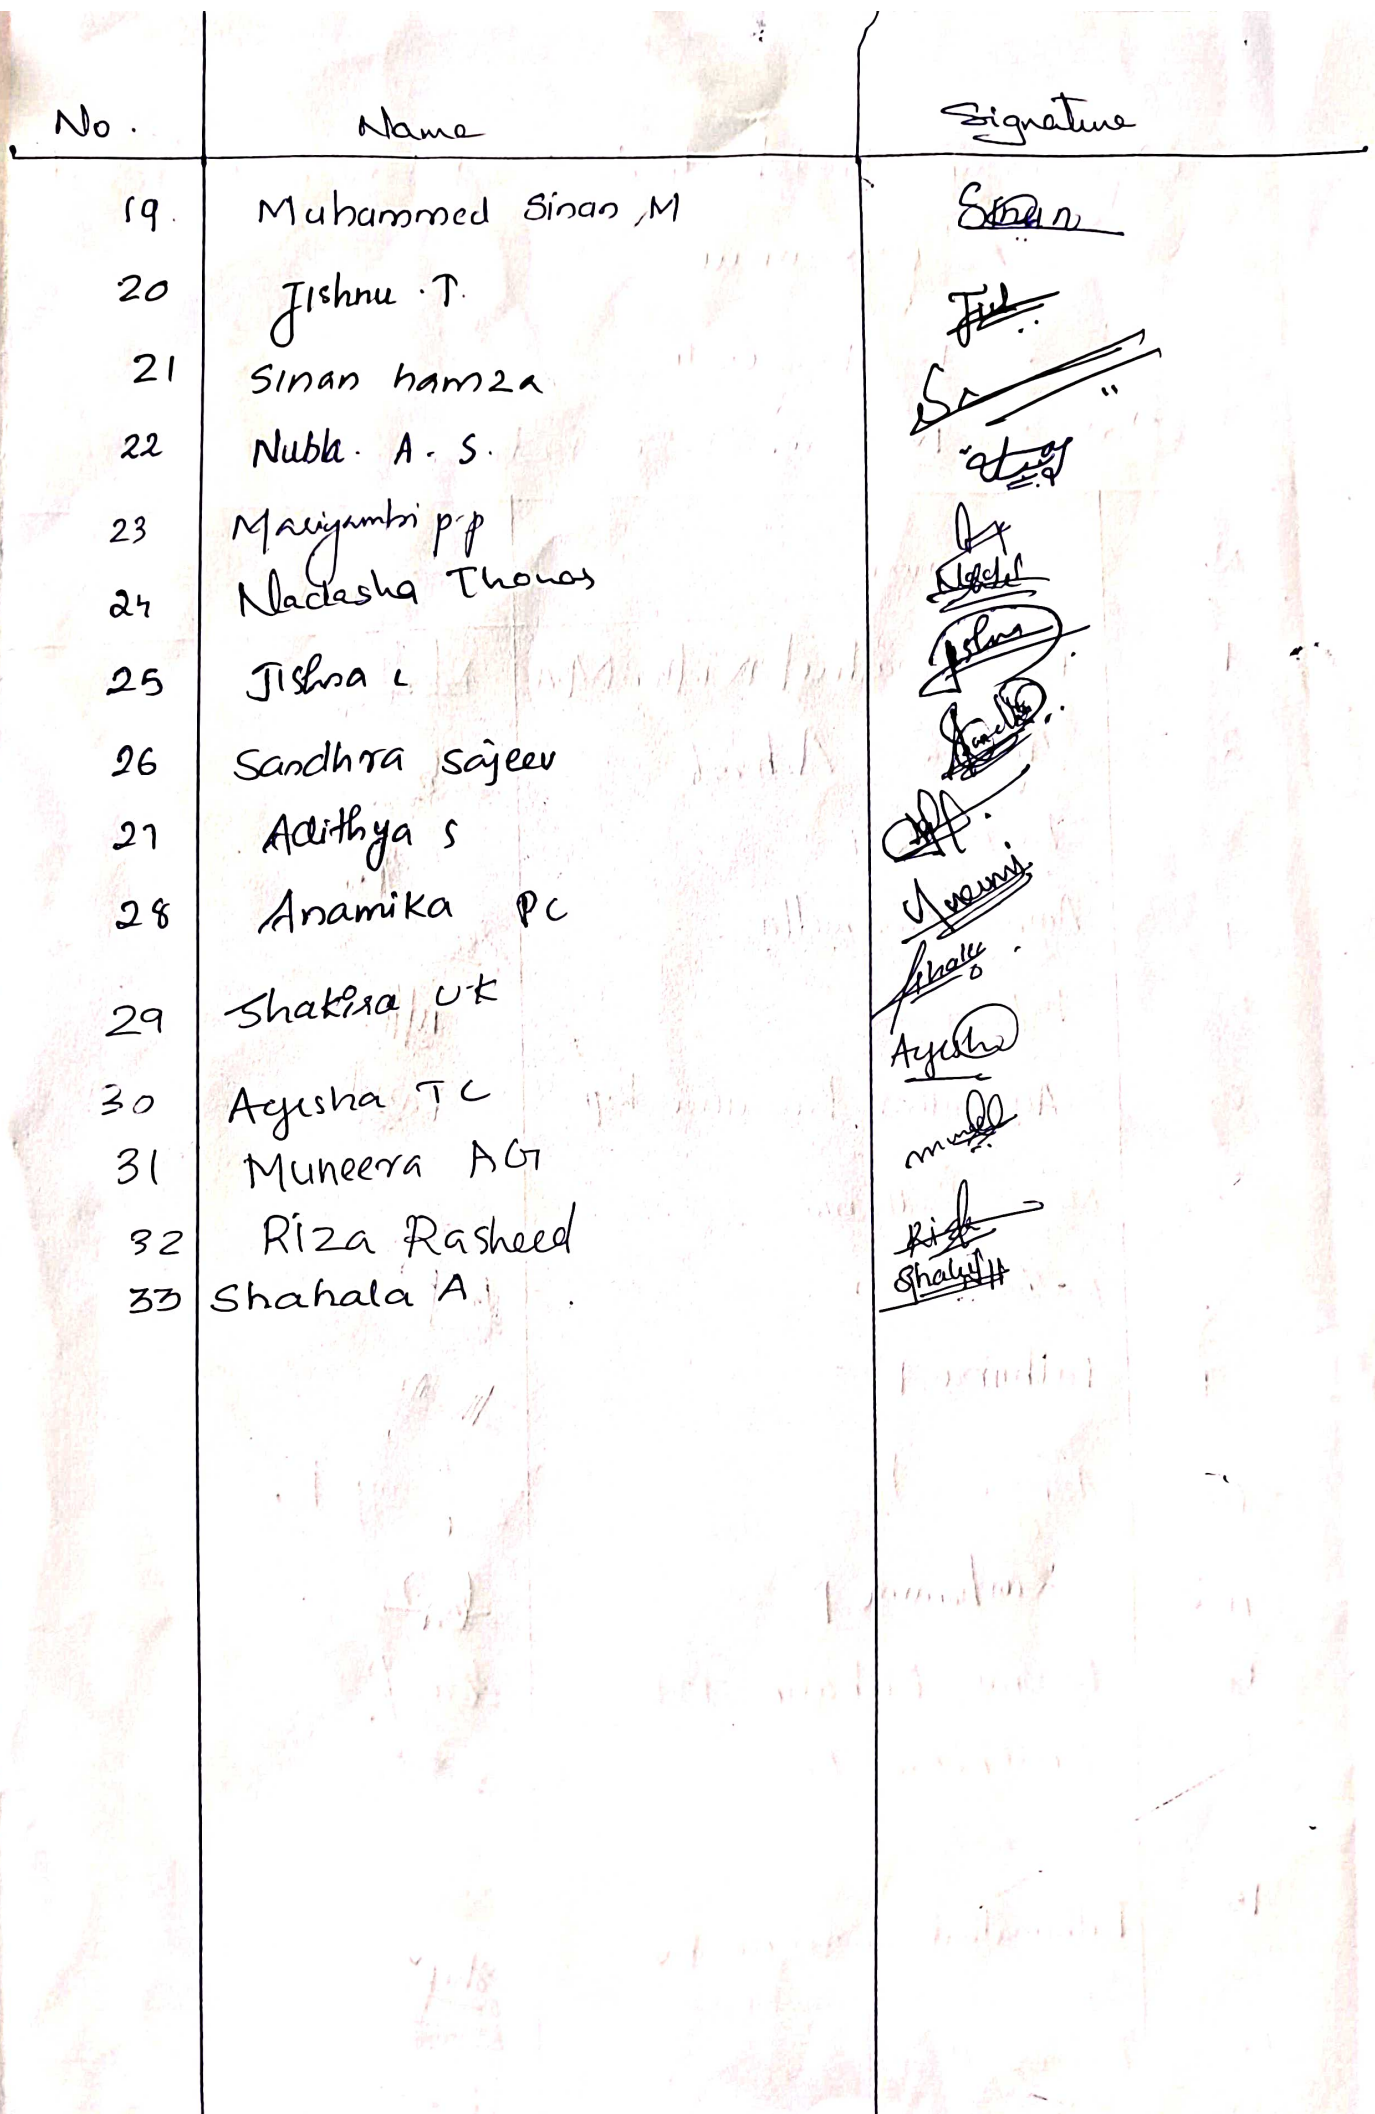 No. Name Signature
19. Muhammed Sinan M Sinan
20 Jishnu . T.
21 Sinan hamza
22 Nubla. A. S.
23 Mariyambi p.p
24 Nadasha Thomas
25 Jishna c Jishna
26 Sandhra Sajeev
27 Adithya s
28 Anamika PC
29 Shakira U.K
30 Ayesha T C Ayesha
31 Muneera AG
32 Riza Rasheed
33 Shahala A